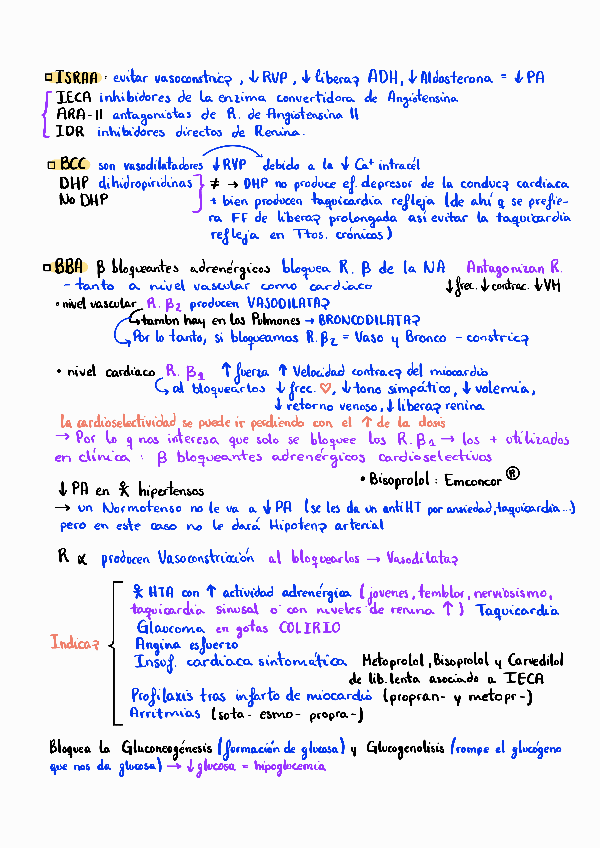 ISRAA: evitar vasoconstric؟, ↓ RVP, ↓ libera؟ ADH, ↓ Aldosterona = ↓ PA
IECA inhibidores de la enzima convertidora de Angiotensina
ARA-II antagonistas de R. de Angiotensina II
IDR inhibidores directos de Renina.
BCC son vasodilatadores ↓RVP debido a la ↓ Ca⁺ intracél
DHP dihidropiridinas } ≠ → DHP no produce ef. depresor de la conduc؟ cardiaca
No DHP + bien producen taquicardia refleja (de ahí q se prefie-
ra FF de libera؟ prolongada así evitar la taquicardia
refleja en Ttos. crónicos)
BBA β bloqueantes adrenérgicos bloquea R. β de la NA Antagonizan R.
- tanto a nivel vascular como cardiaco ↓frec. ↓contrac. ↓VM
• nivel vascular R. β₂ producen VASODILATA؟
tambn hay en los Pulmones → BRONCODILATA؟
Por lo tanto, si bloqueamos R.β₂ = Vaso y Bronco - constric؟
• nivel cardiaco R. β₁ ↑ fuerza ↑ Velocidad contrac؟ del miocardio
al bloquearlos ↓ frec. ♡, ↓ tono simpático, ↓ volemia,
↓ retorno venoso, ↓ libera؟ renina
la cardioselectividad se puede ir perdiendo con el ↑ de la dosis
→ Por lo q nos interesa que solo se bloquee los R.β₁ → los + utilizados
en clínica : β bloqueantes adrenérgicos cardioselectivos
• Bisoprolol : Emconcor ®
↓ PA en hipertensos
→ un Normotenso no le va a ↓ PA (se les da un antiHT por ansiedad, taquicardia...)
pero en este caso no le dará Hipoten؟ arterial
R α producen Vasoconstricción al bloquearlos → Vasodilata؟
HTA con ↑ actividad adrenérgica (jovenes, temblor, nerviosismo,
taquicardia sinusal o con niveles de renina ↑) Taquicardia
Glaucoma en gotas COLIRIO
Indica؟ { Angina esfuerzo
Insuf. cardiaca sintomática Metoprolol, Bisoprolol y Carvedilol
de lib. lenta asociado a IECA
Profilaxis tras infarto de miocardio (propran- y metopr-)
Arritmias (sota- esmo- propra-)
Bloquea la Gluconeogénesis (formación de glucosa) y Glucogenolisis (rompe el glucógeno
que nos da glucosa) → ↓ glucosa = hipoglucemia